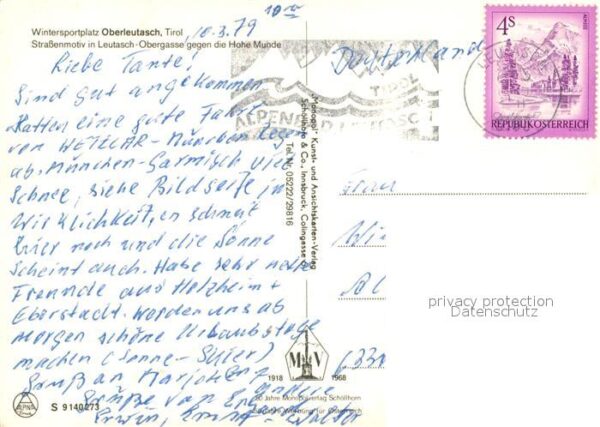 Wintersportplatz Oberleutasch, Tirol
Straßenmotiv in Leutasch-Obergasse gegen die Hohe Munde
10.3.79
10⁰⁰
Liebe Tante!
Sind gut angekommen
Hatten eine gute Fahrt
von WETZLAR-München Regen
ab München-Garmisch viel
Schnee, siehe Bildseite in
Wirklichkeit, es schneit
hier noch und die Sonne
scheint auch. Habe sehr nette
Freunde aus Hetzheim +
Eberstadt. Werden uns ab
Morgen schöne Urlaubstage
machen (Sonne-Skier)
Gruß an
Grüße von
Erwin, Walter
Deutschland
TIROL
ALPENBAD LEUTASCH
4S
REPUBLIK ÖSTERREICH
"Monopol" Kunst- und Ansichtskarten-Verlag
Schöllhorn & Co., Innsbruck, Colingasse
Tel. Nr. 05222/29816
Frau
privacy protection
Datenschutz
M V
1918 1968
50 Jahre Monopolverlag Schöllhorn
ALPINA
S 9140273